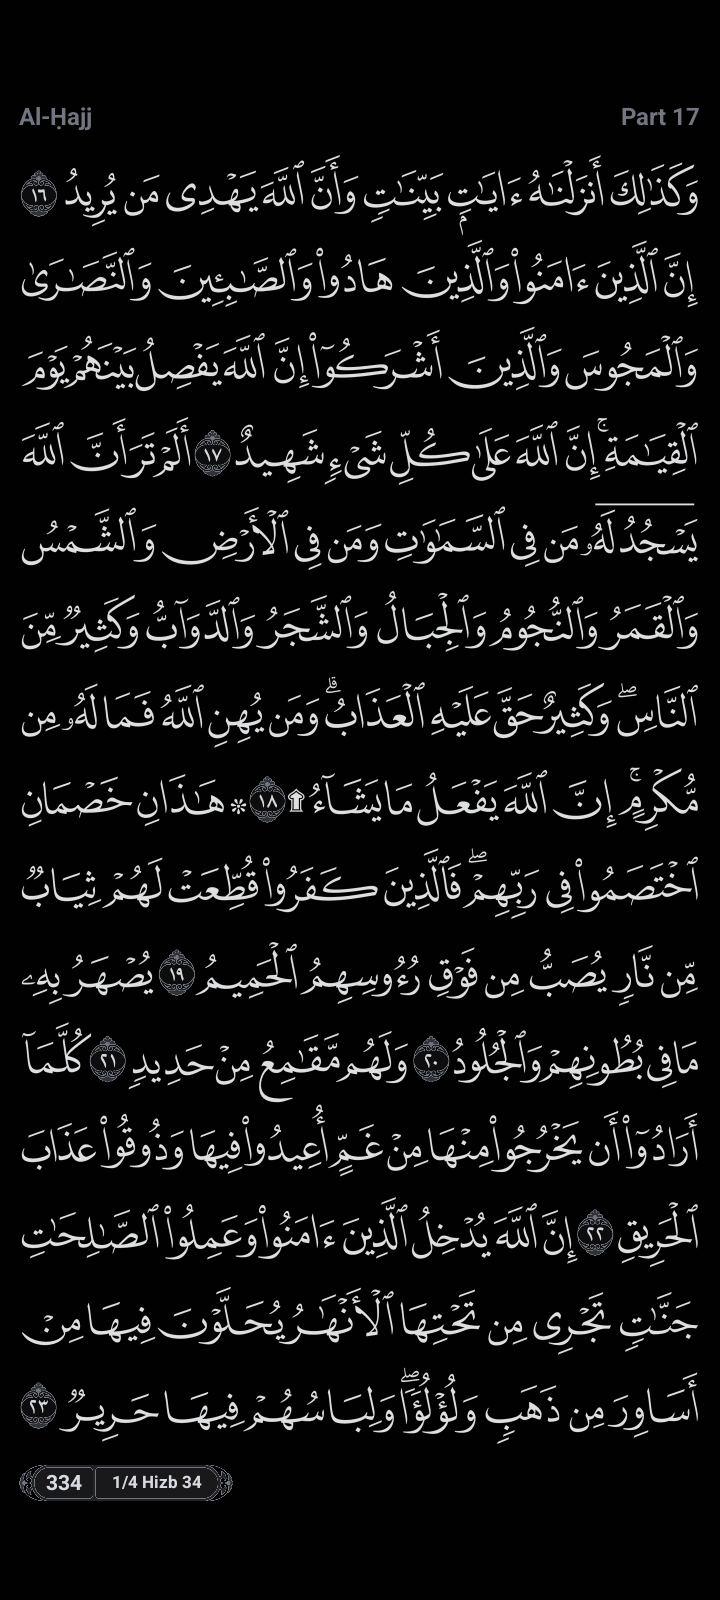 Al-Ḥajj
Part 17
وَكَذَٰلِكَ أَنزَلْنَٰهُ ءَايَٰتٍۭ بَيِّنَٰتٍ وَأَنَّ ٱللَّهَ يَهْدِى مَن يُرِيدُ ١٦
إِنَّ ٱلَّذِينَ ءَامَنُوا۟ وَٱلَّذِينَ هَادُوا۟ وَٱلصَّٰبِـِٔينَ وَٱلنَّصَٰرَىٰ
وَٱلْمَجُوسَ وَٱلَّذِينَ أَشْرَكُوٓا۟ إِنَّ ٱللَّهَ يَفْصِلُ بَيْنَهُمْ يَوْمَ
ٱلْقِيَٰمَةِ ۚ إِنَّ ٱللَّهَ عَلَىٰ كُلِّ شَىْءٍ شَهِيدٌ ١٧ أَلَمْ تَرَ أَنَّ ٱللَّهَ
يَسْجُدُ لَهُۥ مَن فِى ٱلسَّمَٰوَٰتِ وَمَن فِى ٱلْأَرْضِ وَٱلشَّمْسُ
وَٱلْقَمَرُ وَٱلنُّجُومُ وَٱلْجِبَالُ وَٱلشَّجَرُ وَٱلدَّوَآبُّ وَكَثِيرٌ مِّنَ
ٱلنَّاسِ ۖ وَكَثِيرٌ حَقَّ عَلَيْهِ ٱلْعَذَابُ ۗ وَمَن يُهِنِ ٱللَّهُ فَمَا لَهُۥ مِن
مُّكْرِمٍ ۚ إِنَّ ٱللَّهَ يَفْعَلُ مَا يَشَآءُ ۩ ١٨ ۞ هَٰذَانِ خَصْمَانِ
ٱخْتَصَمُوا۟ فِى رَبِّهِمْ ۖ فَٱلَّذِينَ كَفَرُوا۟ قُطِّعَتْ لَهُمْ ثِيَابٌ
مِّن نَّارٍ يُصَبُّ مِن فَوْقِ رُءُوسِهِمُ ٱلْحَمِيمُ ١٩ يُصْهَرُ بِهِۦ
مَا فِى بُطُونِهِمْ وَٱلْجُلُودُ ٢٠ وَلَهُم مَّقَٰمِعُ مِنْ حَدِيدٍ ٢١ كُلَّمَآ
أَرَادُوٓا۟ أَن يَخْرُجُوا۟ مِنْهَا مِنْ غَمٍّ أُعِيدُوا۟ فِيهَا وَذُوقُوا۟ عَذَابَ
ٱلْحَرِيقِ ٢٢ إِنَّ ٱللَّهَ يُدْخِلُ ٱلَّذِينَ ءَامَنُوا۟ وَعَمِلُوا۟ ٱلصَّٰلِحَٰتِ
جَنَّٰتٍ تَجْرِى مِن تَحْتِهَا ٱلْأَنْهَٰرُ يُحَلَّوْنَ فِيهَا مِنْ
أَسَاوِرَ مِن ذَهَبٍ وَلُؤْلُؤًا ۖ وَلِبَاسُهُمْ فِيهَا حَرِيرٌ ٢٣
334
1/4 Hizb 34